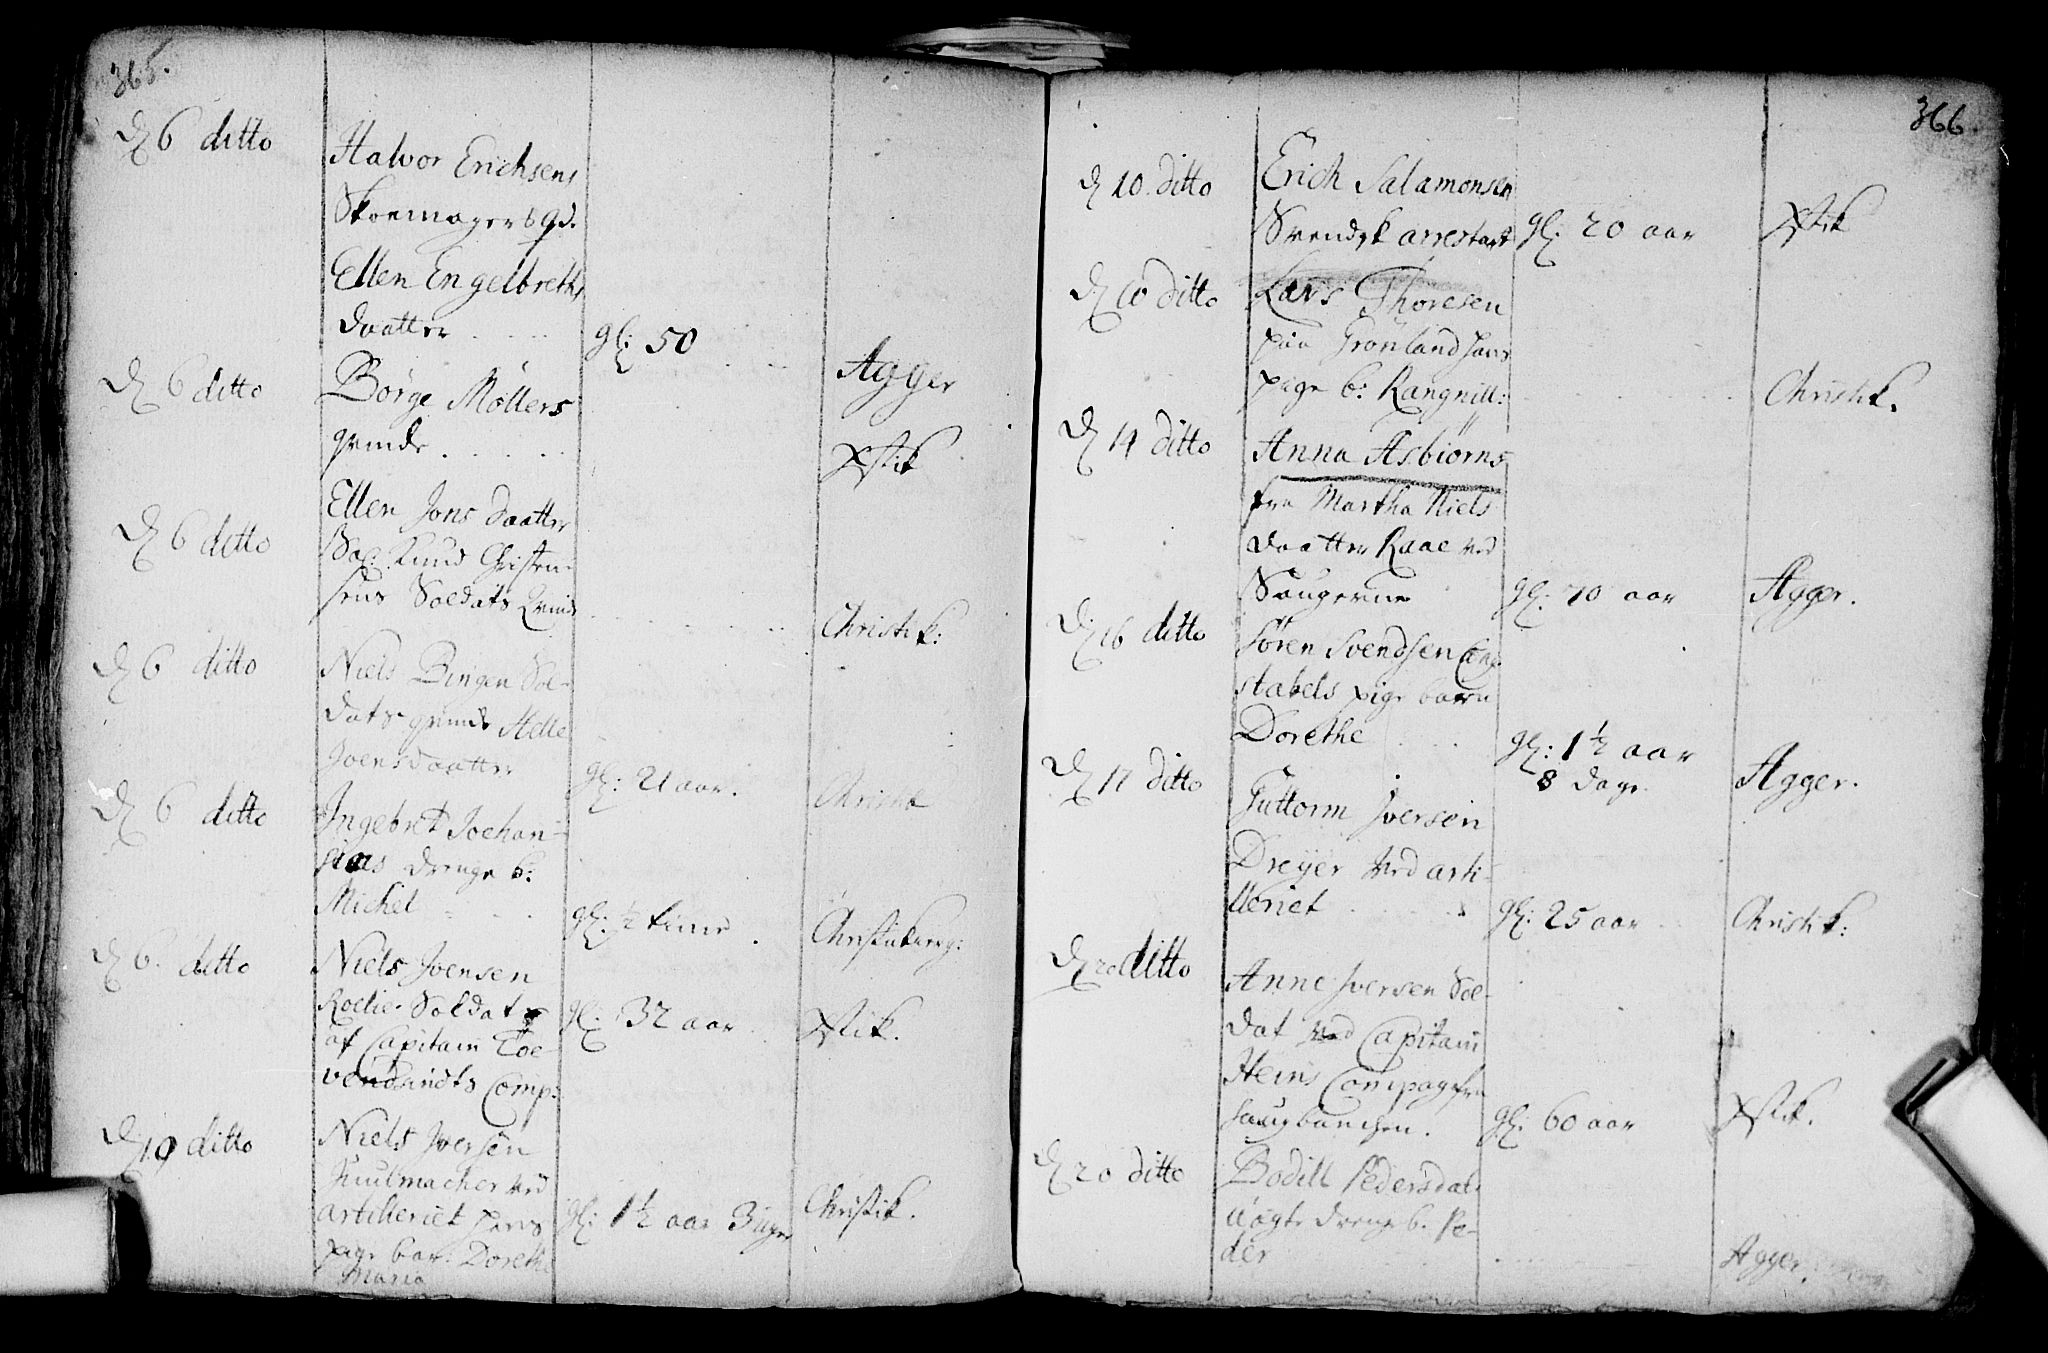 365.
d 6 ditto
Halvor Erichsens
Skoemagers qd.
Ellen Engelbreths
daatter . . . . gl: 50 . . . Agger
d 6 ditto
Børge Møllers
qvinde . . . . . Xstik
d 6 ditto
Ellen Jons daatter
Sal. Knud Christen-
sens Soldats Qvind . . . . Christik:
d 6 ditto
Niels Bingen Sol-
dats qvinde Helle
Joensdaatter gl: 21 aar.
d 6 ditto
Ingebret Joehan-
sens drenge b:
Michel . . . gl: 1/2 time . Christikirg:
d 6. ditto
Niels Joensen
Roelie Soldat gl: 32 aar Xstik.
af Capitain Toe-
Comp:
d 19 ditto
Niels Iversen
Juulmacher ved
artilleriet hans gl: 1 1/2 aar 3 uger Christik.
pige bar: Dorethe
Maria
366.
d 10. ditto
Erich Salamonsen
Svendsk arrestant gl: 20 aar Xstik
d 10 ditto
Lars Thoresen
paa Grønland hans
pige b: Rangnill: . . . . Christik.
d 14 ditto
Anna Asbiørns
fra Martha Niels
daatter Raae ved
Saugerne gl: 70 aar Agger.
d 16 ditto
Søren Svendsen Con-
stabels pige barn
Dorethe . . . gl: 1 1/2 aar
8 dage Agger.
d 17 ditto
Guttorm Iversen
Dreyer ved arti-
lleriet . . . . gl: 25 aar . . Christik:
d 20 ditto
Anne Iversen Sol-
dat ved Capitain
Heins Compag fra
Saugbanchen. gl: 60 aar Xstik.
d 20 ditto
Bodill Pedersdat.
uægte drenge b. Pe-
der . . . . Agger.